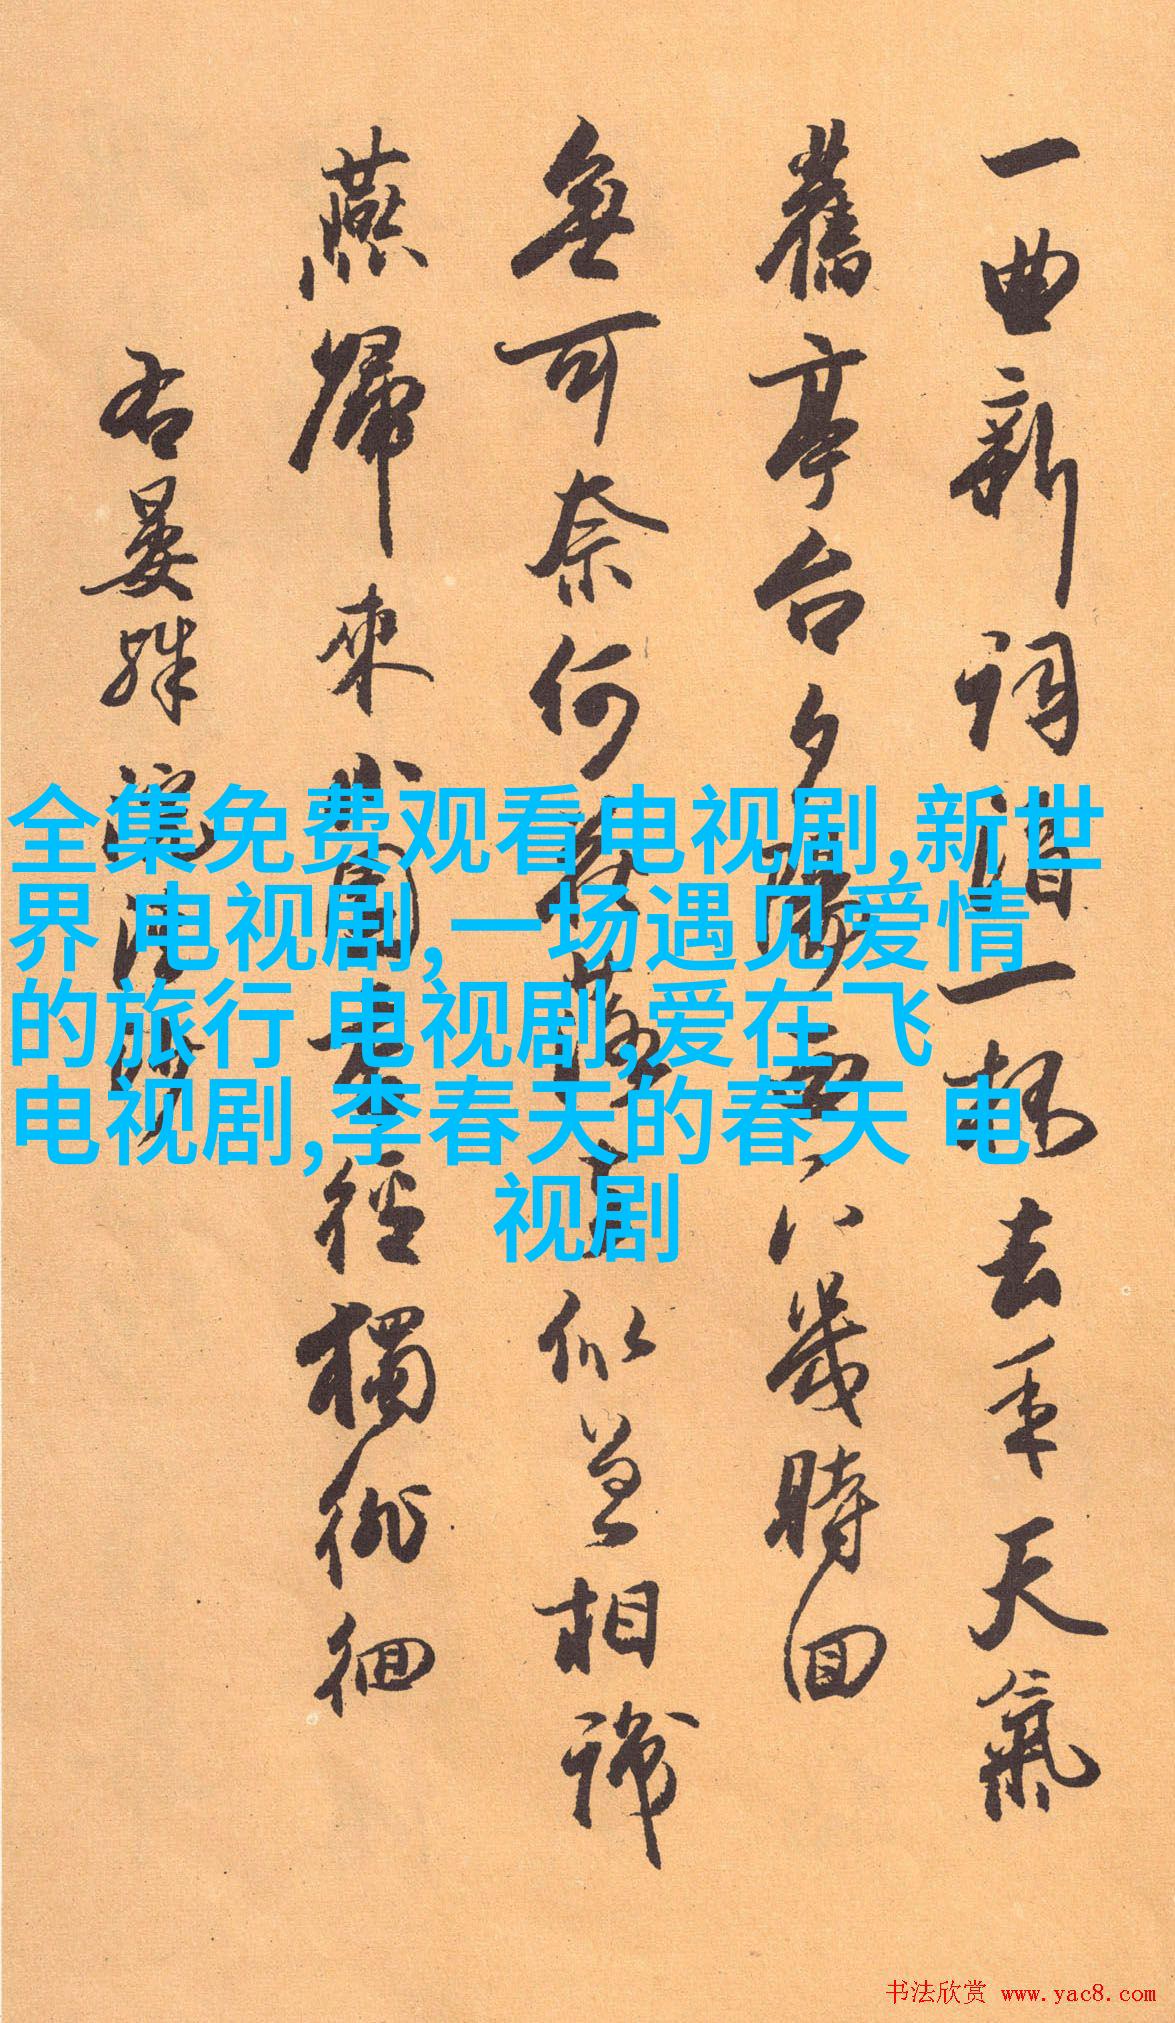 一曲新詞酒一杯去年天氣
舊亭台夕陽西下幾時回
無可奈何花落去似曾相識
燕歸來小園香徑獨徘徊
右晏殊浣溪沙
全集免费观看电视剧,新世
界 电视剧,一场遇见爱情
的旅行 电视剧,爱在飞
电视剧,李春天的春天 电
视剧
书法欣赏 www.yac8.com